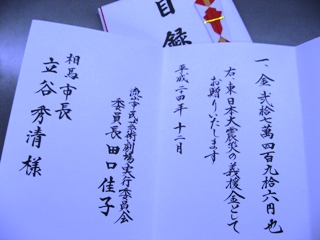 目録
一、金 弐拾七萬四百九拾六円也
右、東日本大震災の義援金として
お贈りいたします
平成二四年 十二月
市民芸術劇場実行委員会
委員長 田口佳子
相馬市長
立谷秀清様